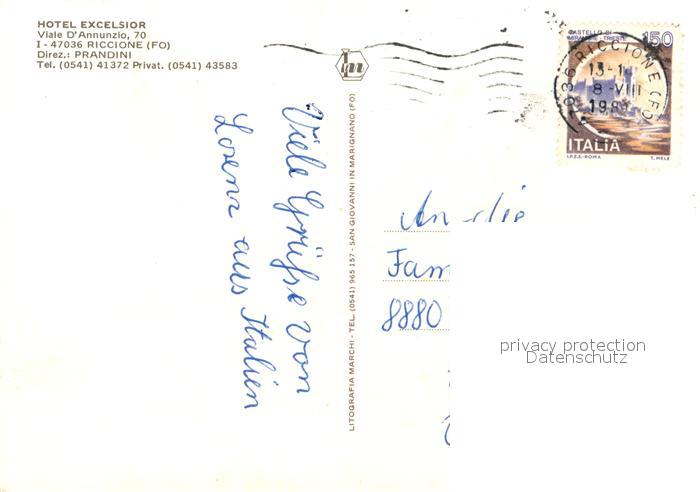 HOTEL EXCELSIOR
Viale D'Annunzio, 70
I - 47036 RICCIONE (FO)
Direz.: PRANDINI
Tel. (0541) 41372 Privat. (0541) 43583
Viele Grüße von
Lorenz aus Italien
LITOGRAFIA MARCHI - TEL. (0541) 965 157 - SAN GIOVANNI IN MARIGNANO (FO)
CASTELLO DI
MIRAMARE - TRIESTE
150
RICCIONE (FO)
8 - VIII
ITALIA
I.P.Z.S. - ROMA
T. MELE
An die
Fam
8880
privacy protection
Datenschutz